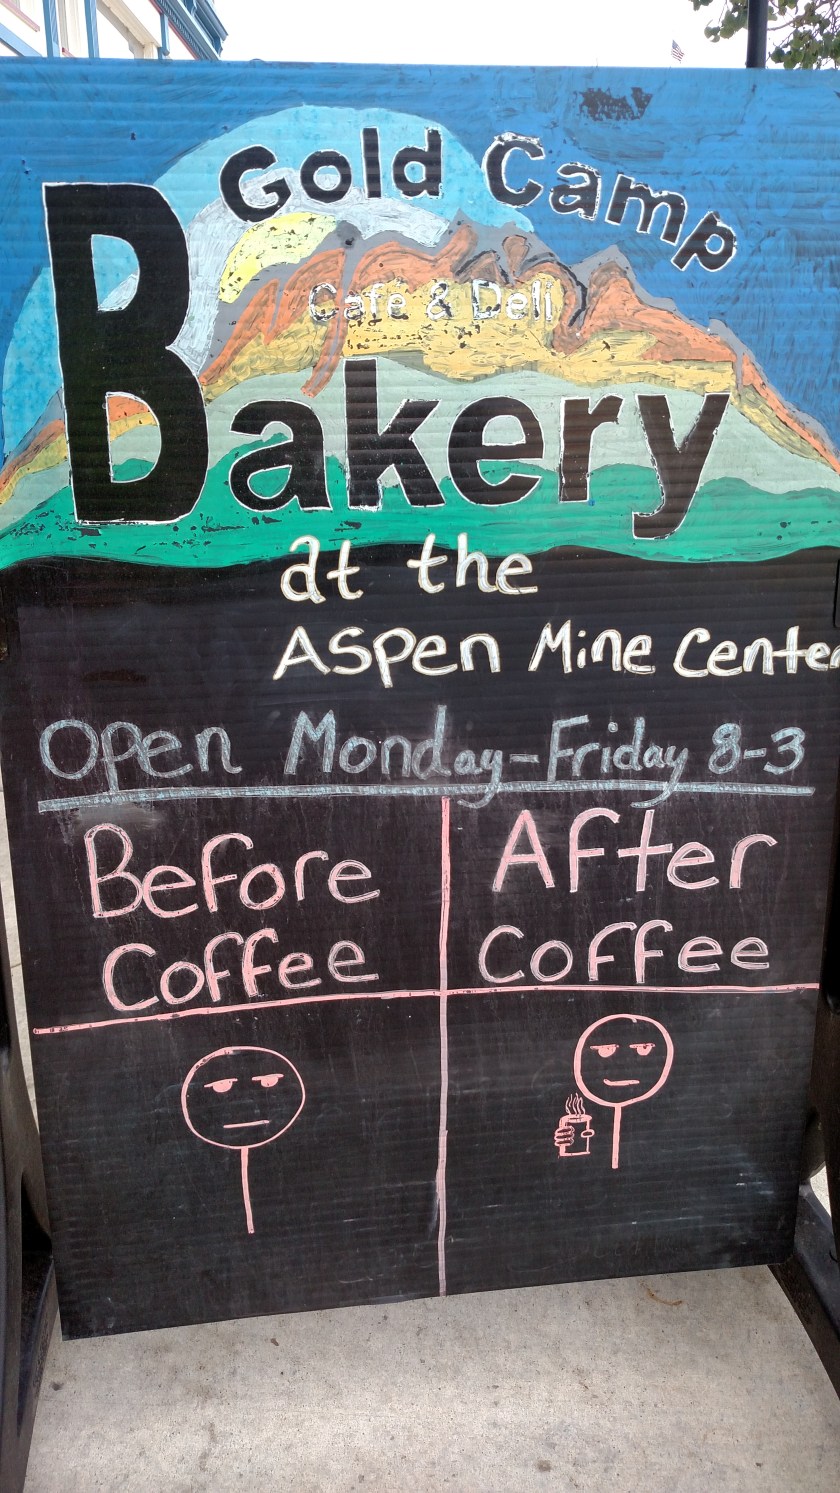 Gold Camp
Café & Deli
Bakery
at the
Aspen Mine Center
Open Monday-Friday 8-3
Before Coffee
After Coffee